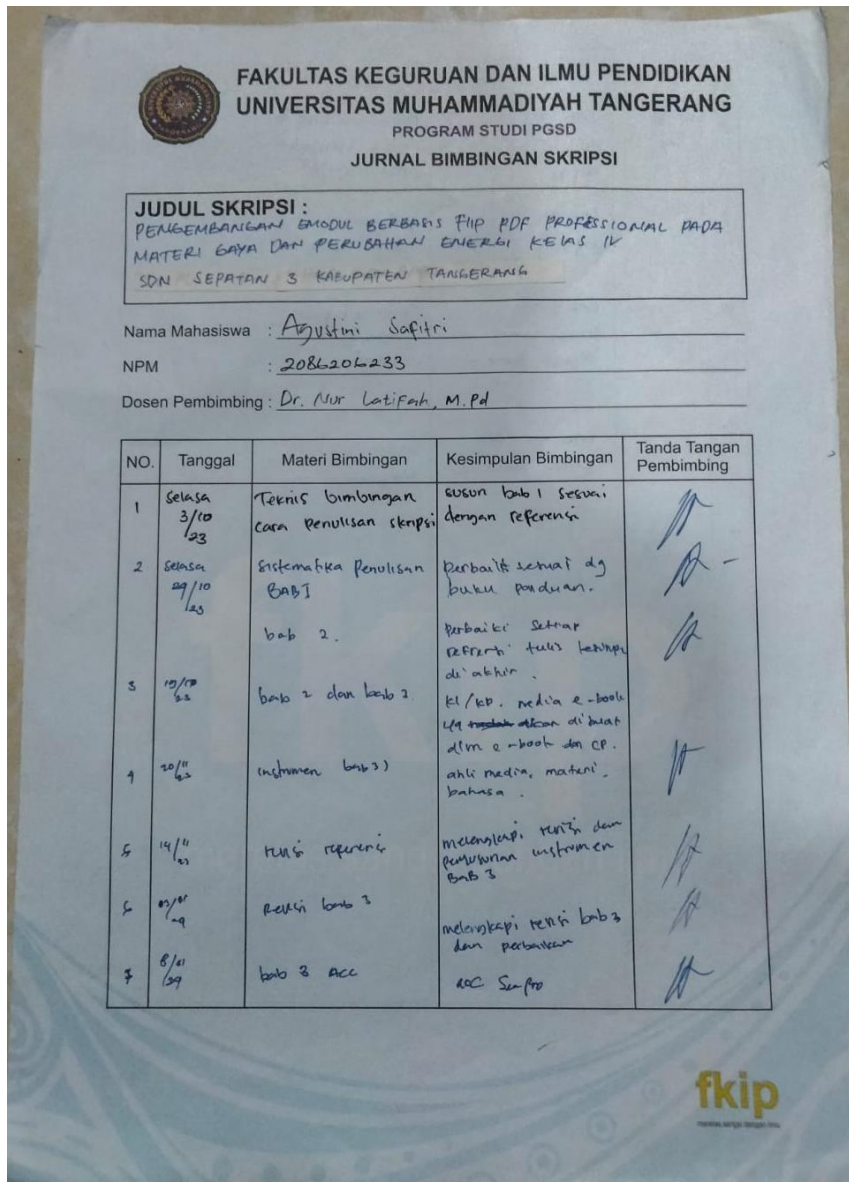 FAKULTAS KEGURUAN DAN ILMU PENDIDIKAN
UNIVERSITAS MUHAMMADIYAH TANGERANG
PROGRAM STUDI PGSD
JURNAL BIMBINGAN SKRIPSI
JUDUL SKRIPSI :
PENGEMBANGAN EMODUL BERBASIS FLIP PDF PROFESSIONAL PADA
MATERI GAYA DAN PERUBAHAN ENERGI KELAS IV
SDN SEPATAN 3 KABUPATEN TANGERANG
Nama Mahasiswa : Agustini Safitri
NPM : 2086206233
Dosen Pembimbing : Dr. Nur Latifah, M.Pd
NO. Tanggal Materi Bimbingan Kesimpulan Bimbingan Tanda Tangan Pembimbing
1 Selasa Teknis bimbingan susun bab 1 sesuai
3/10 cara penulisan skripsi dengan referensi
/23
2 Selasa Sistematika Penulisan perbaiki sesuai dg
29/10 BAB I buku panduan.
/23
bab 2. Perbaiki setiap
tulis
di akhir.
3 bab 2 dan bab 3 KI/KD. media e-book
yg akan dibuat
dlm e-book dan CP.
4 20/11 instrumen bab 3) ahli media, materi,
/23 bahasa.
5 14/11 revisi referensi melengkapi revisi dan
/23 penyusunan instrumen
BAB 3
Revisi bab 3 melengkapi revisi bab 3
dan perbaikan
7 8/01 bab 3 ACC ACC Sempro
fkip